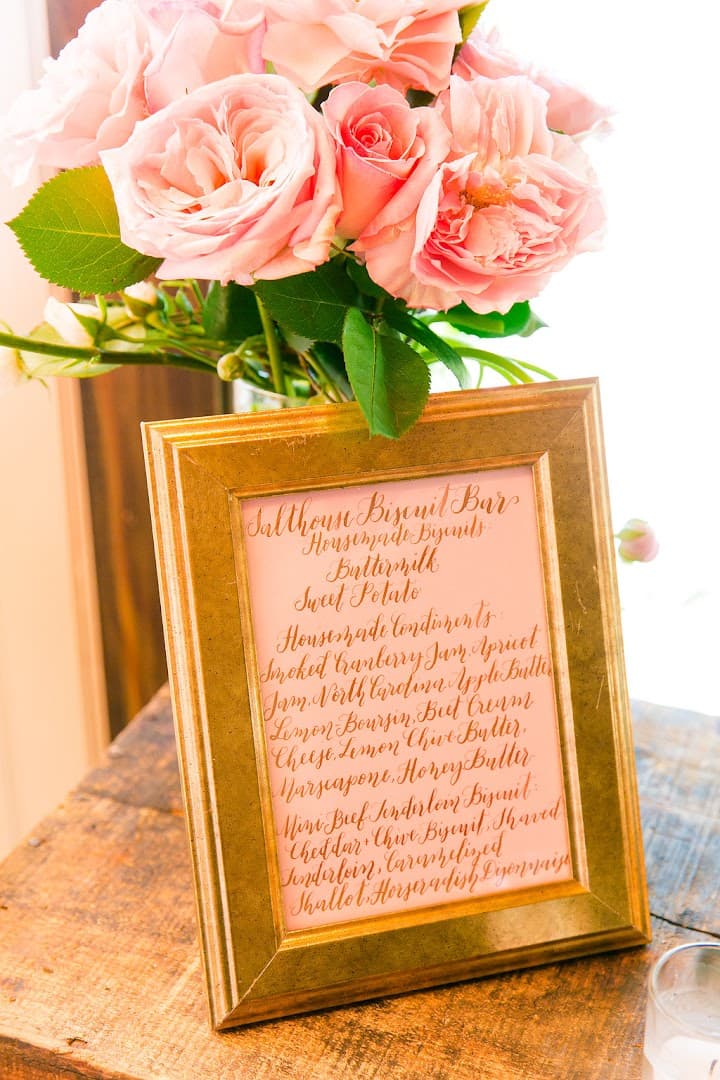 Salthouse Biscuit Bar
Housemade Biscuits
Buttermilk
Sweet Potato
Housemade Condiments
Smoked Cranberry Jam, Apricot
Jam, North Carolina Apple Butter
Lemon Boursin, Beet Cream
Cheese, Lemon Chive Butter,
Marscapone, Honey Butter
Mini Beef Tenderloin Biscuit:
Cheddar + Chive Biscuit, Shaved
Tenderloin, Caramelized
Shallot, Horseradish Dijonnaise